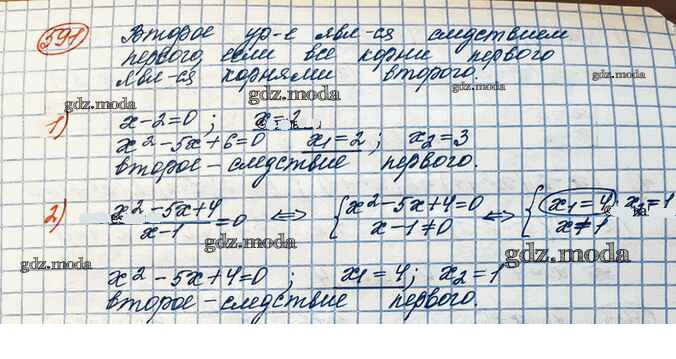 591 Второе ур-е явл-ся следствием
первого, если все корни первого
явл-ся корнями второго.
gdz.moda
gdz.moda
gdz.moda
gdz.moda
gdz.moda
1) x-2=0 ; x=2 ,
x²-5x+6=0 x₁=2 ; x₂=3
второе-следствие первого.
gdz.moda
gdz.moda
2) x²-5x+4 / x-1 =0 ⇔ { x²-5x+4=0 x-1≠0 ⇔ { x₁=4, x₂=1 x≠1
gdz.moda
gdz.moda
gdz.moda
x²-5x+4=0 ; x₁=4; x₂=1
второе-следствие первого.
gdz.moda